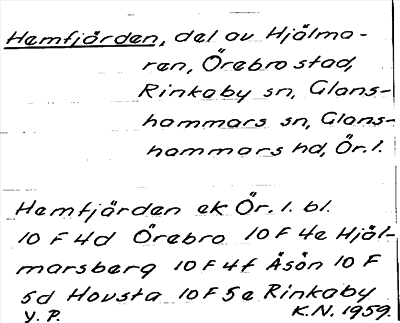 Hemfjärden, del av Hjälma-
ren, Örebro stad,
Rinkaby sn, Glans-
hammars sn, Glans-
hammars hd, Ör. l.
Hemfjärden ek Ör. l. bl.
10 F 4d Örebro 10 F 4e Hjäl-
marsberg 10 F 4f Åsön 10 F
5d Hovsta 10 F 5e Rinkaby
Y. P. K.N. 1959.